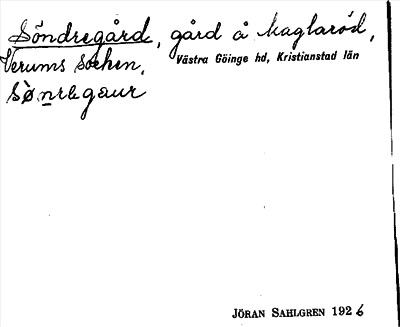 Söndregård, gård å Maglaröd,
Verums socken, Västra Göinge hd, Kristianstad län
sònregaur
JÖRAN SAHLGREN 1926